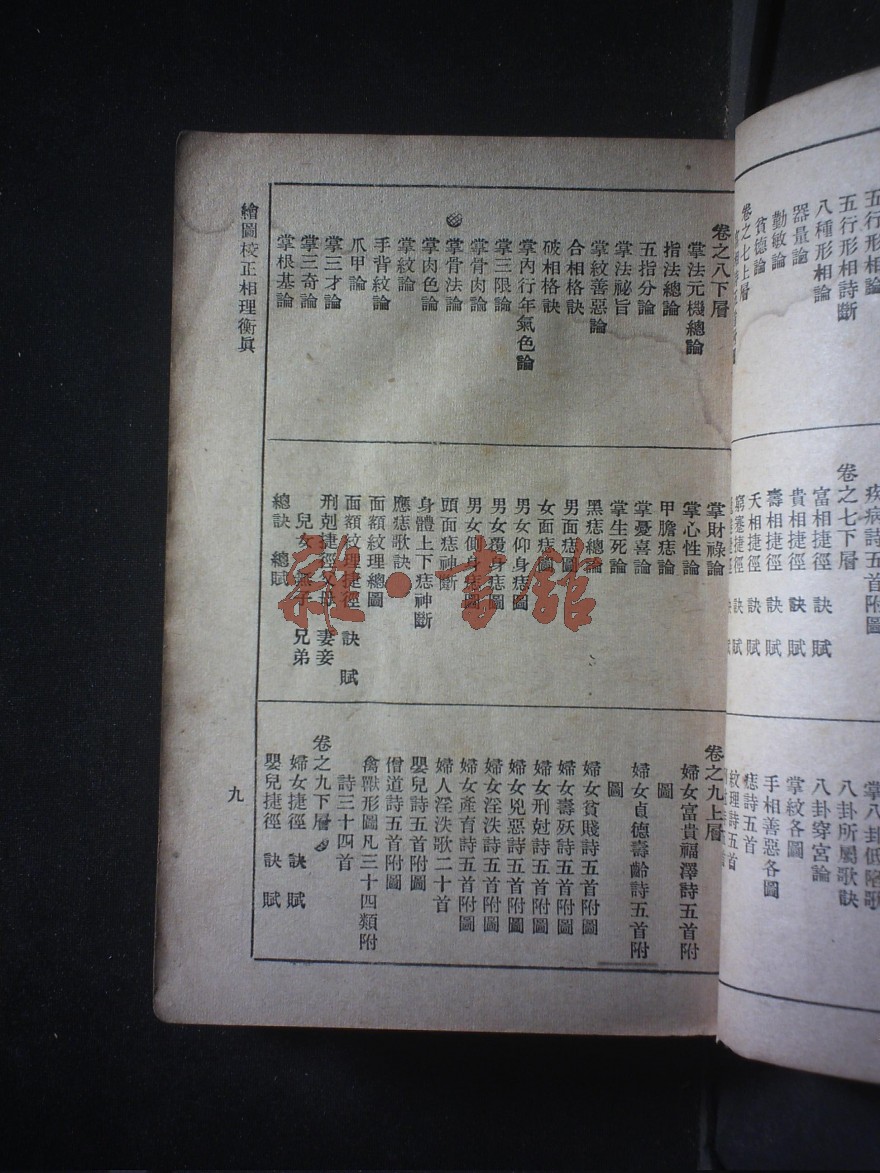 五行形相論
五行形相詩斷
八種形相論
器量論
勤敏論
貧德論
卷之七上層
疾病詩五首附圖
卷之七下層
富相捷徑 訣 賦
貴相捷徑 訣 賦
壽相捷徑 訣 賦
夭相捷徑 訣 賦
窮蹇捷徑 訣 賦
掌八卦低陷歌
八卦所屬歌訣
八卦穿宮論
掌紋各圖
手相善惡各圖
痣詩五首
紋理詩五首
卷之八下層
掌法元機總論
指法總論
五指分論
掌法祕旨
掌紋善惡論
合相格訣
破相格訣
掌內行年氣色論
掌三限論
掌骨肉論
掌骨法論
掌肉色論
掌紋論
手背紋論
爪甲論
掌三才論
掌三奇論
掌根基論
掌財祿論
掌心性論
甲膽痣論
掌憂喜論
掌生死論
黑痣總論
男面痣圖
女面痣圖
男女仰身痣圖
男女覆身痣圖
男女側身痣圖
頭面痣神斷
身體上下痣神斷
應痣歌訣
面額紋理總圖
面額紋理捷徑 訣 賦
刑剋捷徑父母 妻妾
兒女無子 兄弟
總訣 總賦
卷之九上層
婦女富貴福澤詩五首附
圖
婦女貞德壽齡詩五首附
圖
婦女貧賤詩五首附圖
婦女壽殀詩五首附圖
婦女刑尅詩五首附圖
婦女兇惡詩五首附圖
婦女淫泆詩五首附圖
婦女產育詩五首附圖
婦人淫泆歌二十首
嬰兒詩五首附圖
僧道詩五首附圖
禽獸形圖凡三十四類附
詩三十四首
卷之九下層
婦女捷徑 訣 賦
嬰兒捷徑 訣 賦
繪圖校正相理衡眞
九
雜·書館